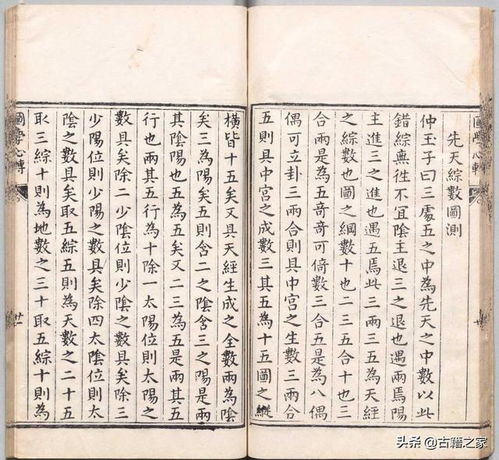 先天綜數圖測
仲玉子曰三處五之中為先天之中數以此
錯綜無徃不宜陰主退三之退也遇兩焉陽
主進三之進也遇五焉此三兩三五為天經
之綜數也圖之綱數十也二三五合十也三
合兩是為五奇奇可倚數三合五是為八偶
偶可立卦三兩合則具中宮之生數三兩合
五則具中宮之成數三其五為十五圖之縱
橫皆十五矣又具天經生成之全數兩為陰
矣三為陽矣五則含二之陰含三之陽是兩
其陰陽也五為五矣又二三為五是兩其五
行也兩其五行為十除一太陽位則太陽之
數具矣除二少陰位則少陰之數具矣除三
少陽位則少陽之數具矣除四太陰位則太
陰之數具矣取五綜五則為天數之二十五
取三綜十則為地數之三十取五綜十則為
圖學心傳
头条 @古籍之家